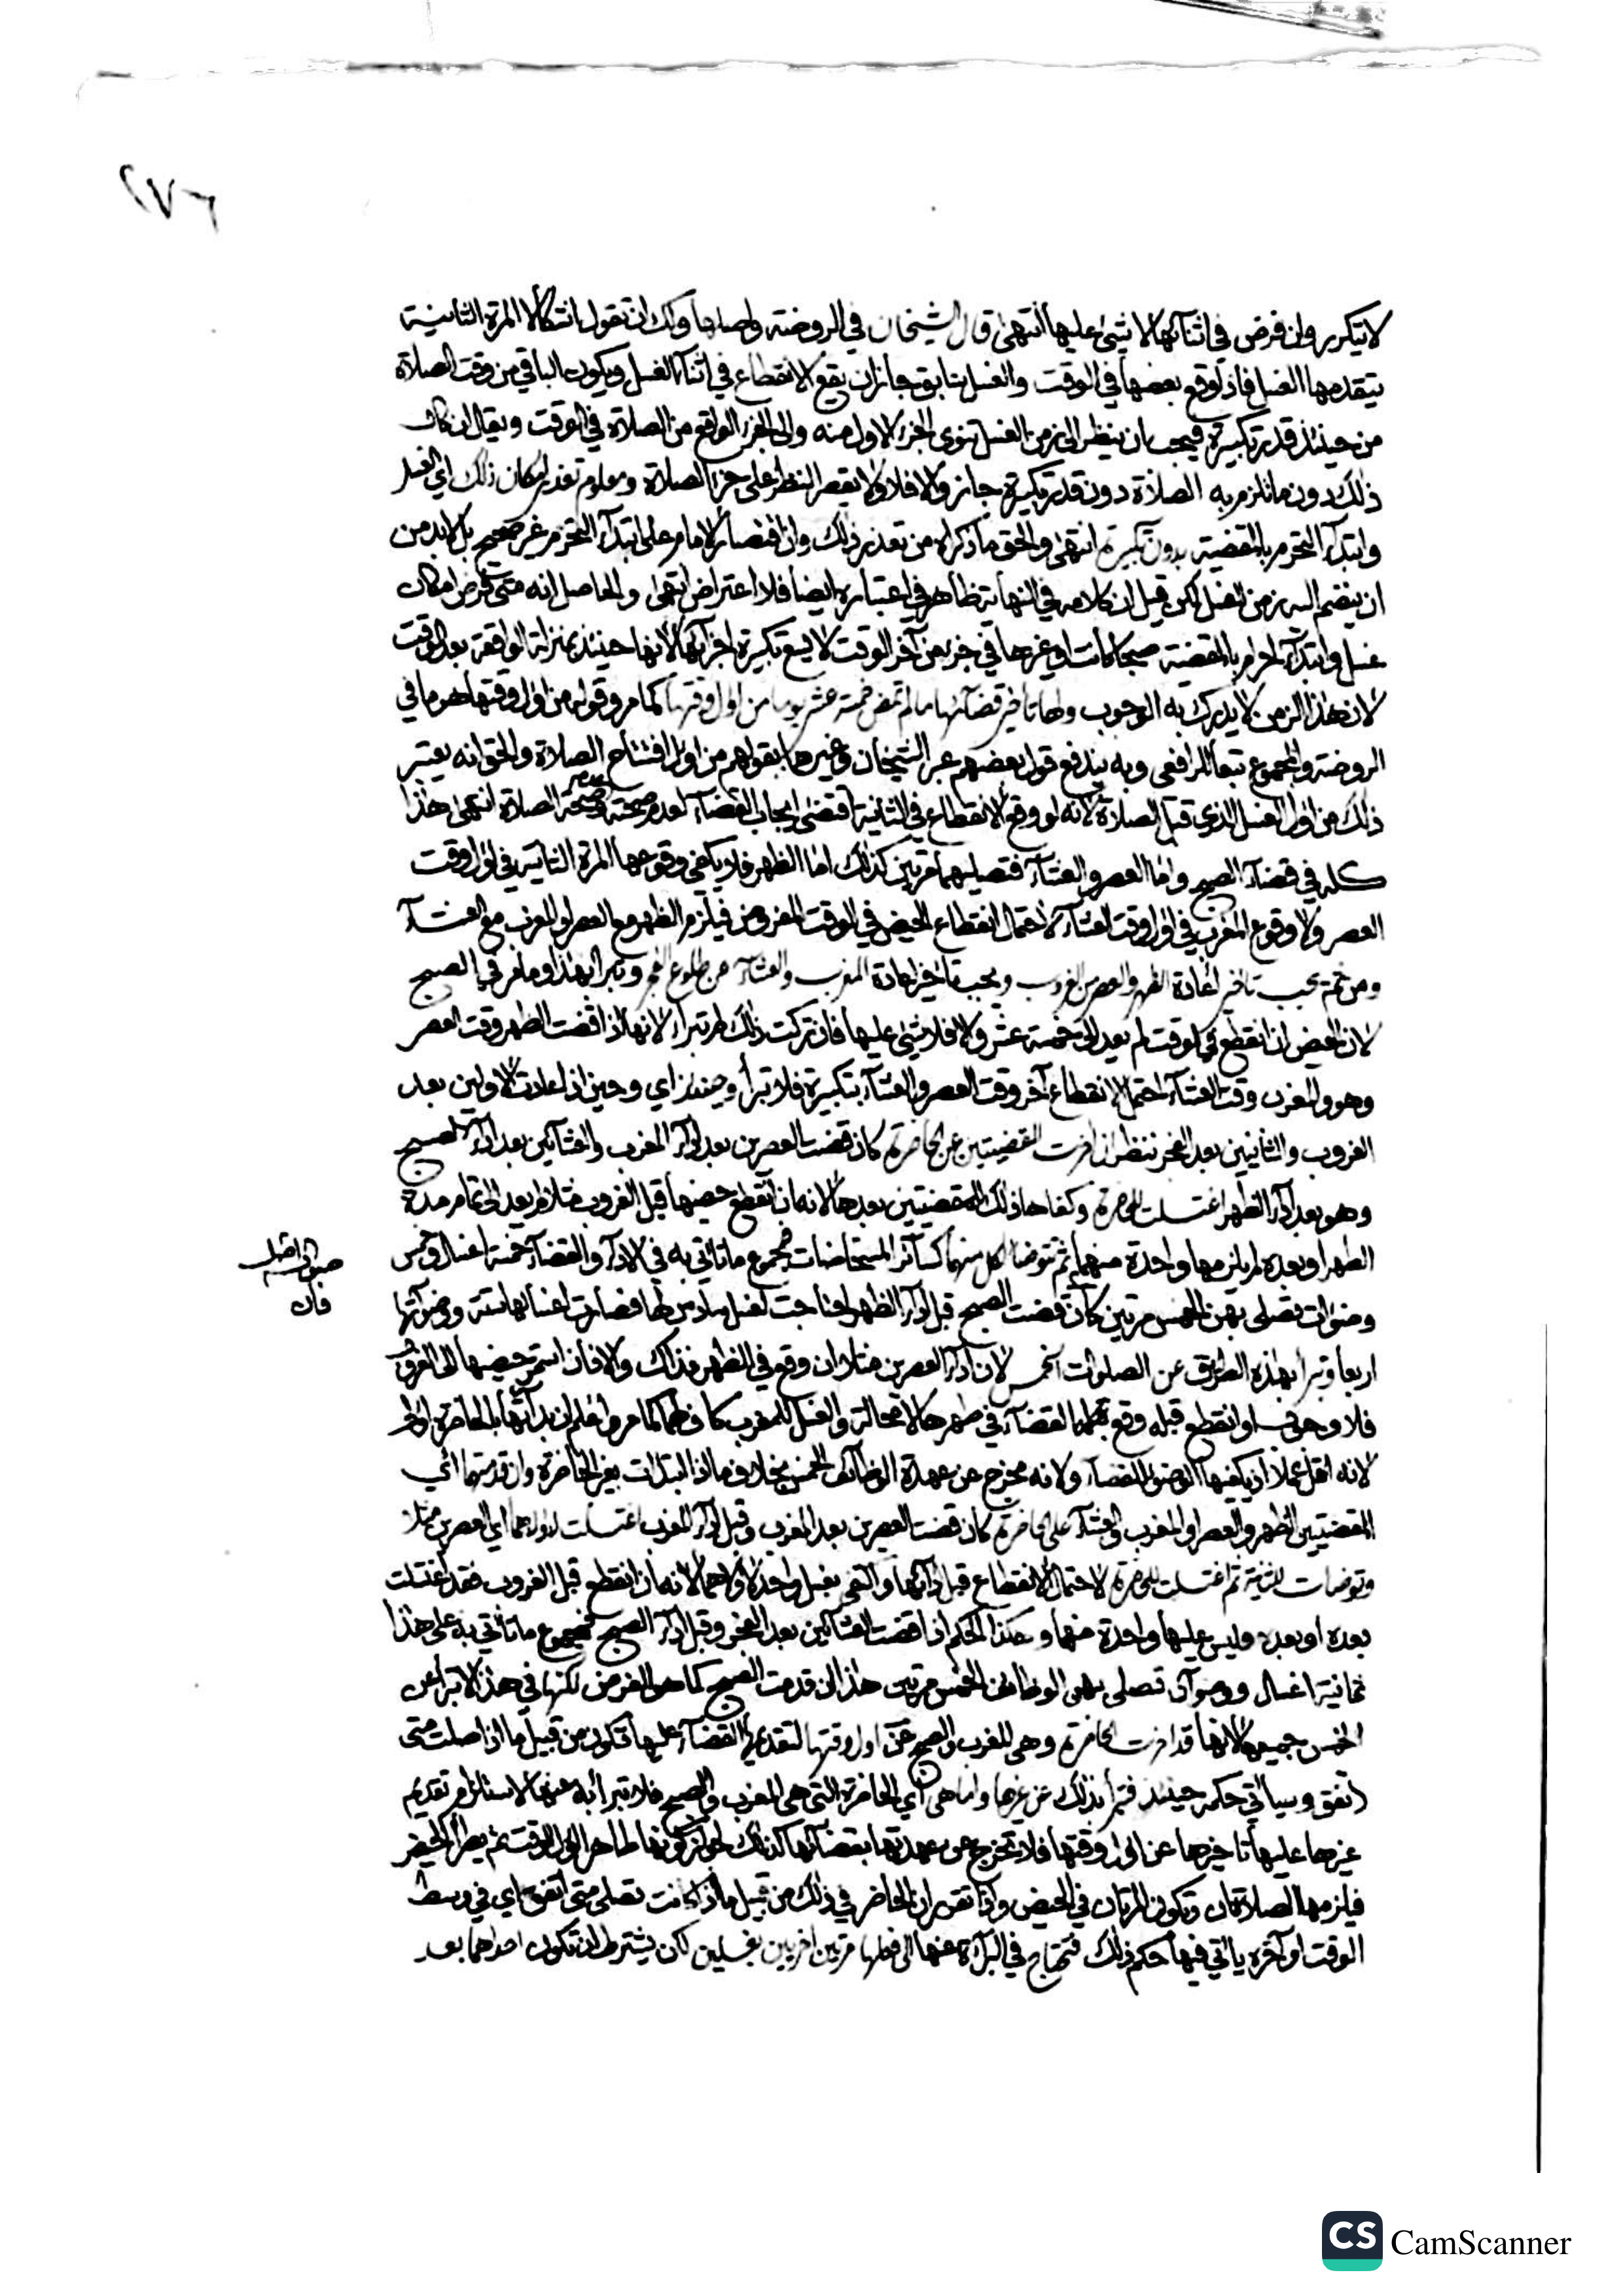 ٢٧٦
لا يتكرر وان فرض في اثنائها لا شيئ عليها انتهى قال الشيخان في الروضة واصلها ولك ان تقول اشكالا المرة الثانية
يتقدمها الغسل فاذا وقع بعضها في الوقت والغسل سابق جاز ان يقع الانقطاع في اثناء الغسل ويكون الباقي من وقت الصلاة
من حينئذ قدر تكبيرة فيجب ان ينظر الى زمن الغسل سوى الجزء الاول منه والى الجزء الواقع من الصلاة في الوقت ويقال ان كان
ذلك دون ما تلزم به الصلاة دون قدر تكبيرة جاز والا فلا ولا يقصر النظر على جزء الصلاة ومعلوم تعذر امكان ذلك اي الغسل
وابتداء التحرم بالمقضية بدون تكبيرة انتهى والحق ما ذكراه من تعذر ذلك وان اقتصار الامام على ابتداء التحرم غير صحيح بل لا بد من
ان ينضم اليه زمن الغسل لكن قيل ان كلامه في النهاية ظاهر في اعتباره ايضا فلا اعتراض انتهى والحاصل انه متى فرض امكان
غسل وابتداء احرام بالمقضية صبحا كانت او غيرها في جزء من آخر الوقت لا يسع تكبيرة اجزأتها لانها حينئذ بمنزلة الواقعة بعد الوقت
لان هذا الزمن لا يدرك به الوجوب ولها تأخير قضائها ما لم تمض خمسة عشر يوما من اول وقتها كما مر وقوله من اول وقتها هو ما في
الروضة والمجموع تبعا للرافعي وبه يندفع قول بعضهم عبر الشيخان وغيرهما بقولهم من اول افتتاح الصلاة والحق انه يعتبر
ذلك من اول الغسل الذي قبل الصلاة لانه لو وقع الانقطاع في الثانية اقتضى ايجاب القضاء لعدم صحته وعدم صحة الصلاة انتهى هذا
كله في قضاء الصبح واما العصر والعشاء فتصليهما مرتين كذلك اما الظهر فلا يكفي وقوعها المرة الثانية في اول وقت
العصر ولا وقوع المغرب في اول وقت العشاء لاحتمال انقطاع الحيض في الوقت المفروض فيلزم الظهر مع العصر او المغرب مع العشاء
ومن ثم يجب تأخير اعادة الظهر والعصر عن الغروب ويجب تأخير اعادة المغرب والعشاء عن طلوع الفجر وتبرأ بهذا وما مر في الصبح
لان الحيض اذا انقطع في الوقت لم يعد الى خمسة عشر والا فلا شيئ عليها فان تركت ذلك لم تبرأ لانها اذا قضت الظهر وقت العصر
وهو والمغرب وقت العشاء احتمل الانقطاع آخر وقت العصر والعشاء بتكبيرة فلا تبرأ وحينئذ اي وحين اذ اعادت الاولين بعد
الغروب والثانيين بعد الفجر ننظر ان اخرت المقضيتين عن الحاضرة كان قضت العصرين بعد اداء المغرب والعشائين بعد اداء الصبح
وهو بعد اداء الظهر اغتسلت للحاضرة وكفاها ذلك للمقضيتين بعدها لانه ان انقطع حيضها قبل الغروب مثلا لم يعد الى تمام مدة
الطهر او بعده لم يلزمها واحدة منهما ثم توضأ لكل منهما كسائر المستحاضات فجموع ما تاتي به في الاداء والقضاء خمسة اغسال وخمس
وضوآت فصلى بهن الخمس مرتين كان قضت الصبح قبل اداء الظهر احتاجت لغسل سادس لها فصارت اغسالها ستة ووضوآتها
اربعا وتبرأ بهذه الطريق عن الصلوات الخمس لان اداء العصرين مثلا ان وقع في الظهر فذاك والا فان استمر حيضها الى الغروب
فلا وجوب او انقطع قبله وقع فعلها القضاء في طهرها لا محالة والغسل للمغرب كاف لهما كما مر واعلم ان بدائتها بالحاضرة اولى
لانه اقل عملا اذ يكفيها الوضوء للقضاء ولانه مخرج من عهدة الوظائف الخمس بخلاف ما اذا ابتدأت بغير الحاضرة وان قدمتهما اي
المقضيتين الظهر والعصر او المغرب والعشاء على الحاضرة كان قضت العصرين بعد المغرب وقبل اداء المغرب اغتسلت لاولاهما اي العصرين مثلا
وتوضأت للثانية ثم اغتسلت للحاضرة لاحتمال الانقطاع قبل ادائها واكتفى بغسل واحد لاولاهما لانه ان انقطع قبل الغروب فقد اغتسلت
بعده او بعده وليس عليها واحدة منهما وهكذا الحكم اذا قضت العشائين بعد الفجر وقبل اداء الصبح فمجموع ما تاتي به على هذا
ثمانية اغسال ووضوآن فصلى بهن الوظائف الخمس مرتين هذا ان قدمت الصبح كما هو الفرض لكنها في هذا لا تبرأ عن
الخمس جميعها لانها قد اخرت الحاضرة وهي المغرب والصبح عن اول وقتها لتقديمها القضاء عليها فتكون من قبيل ما اذا صلت متى
اتفق وسياتي حكمه حينئذ فتبرأ بذلك عن غيرها واما هي اي الحاضرة التي هي المغرب والصبح فلا تبرأ به عنها لاستلزام تقديم
غيرها عليها تاخيرها عن اول وقتها فلا تخرج عن عهدتها بقضائها كذلك لجواز كونها طاهرا اول الوقت ثم يطرأ الحيض
فيلزمها الصلاتان وتكون المرتان في الحيض واذا تقرر ان الحاضر في ذلك من قبيل ما اذا كانت تصلى متى اتفق اي في وسط
الوقت او آخره ياتي فيها حكم ذلك فتحتاج في البرآءة عنها الى فعلها مرتين اخريين بغسلين لكن يشترط ان تكون احداهما بعد
فان